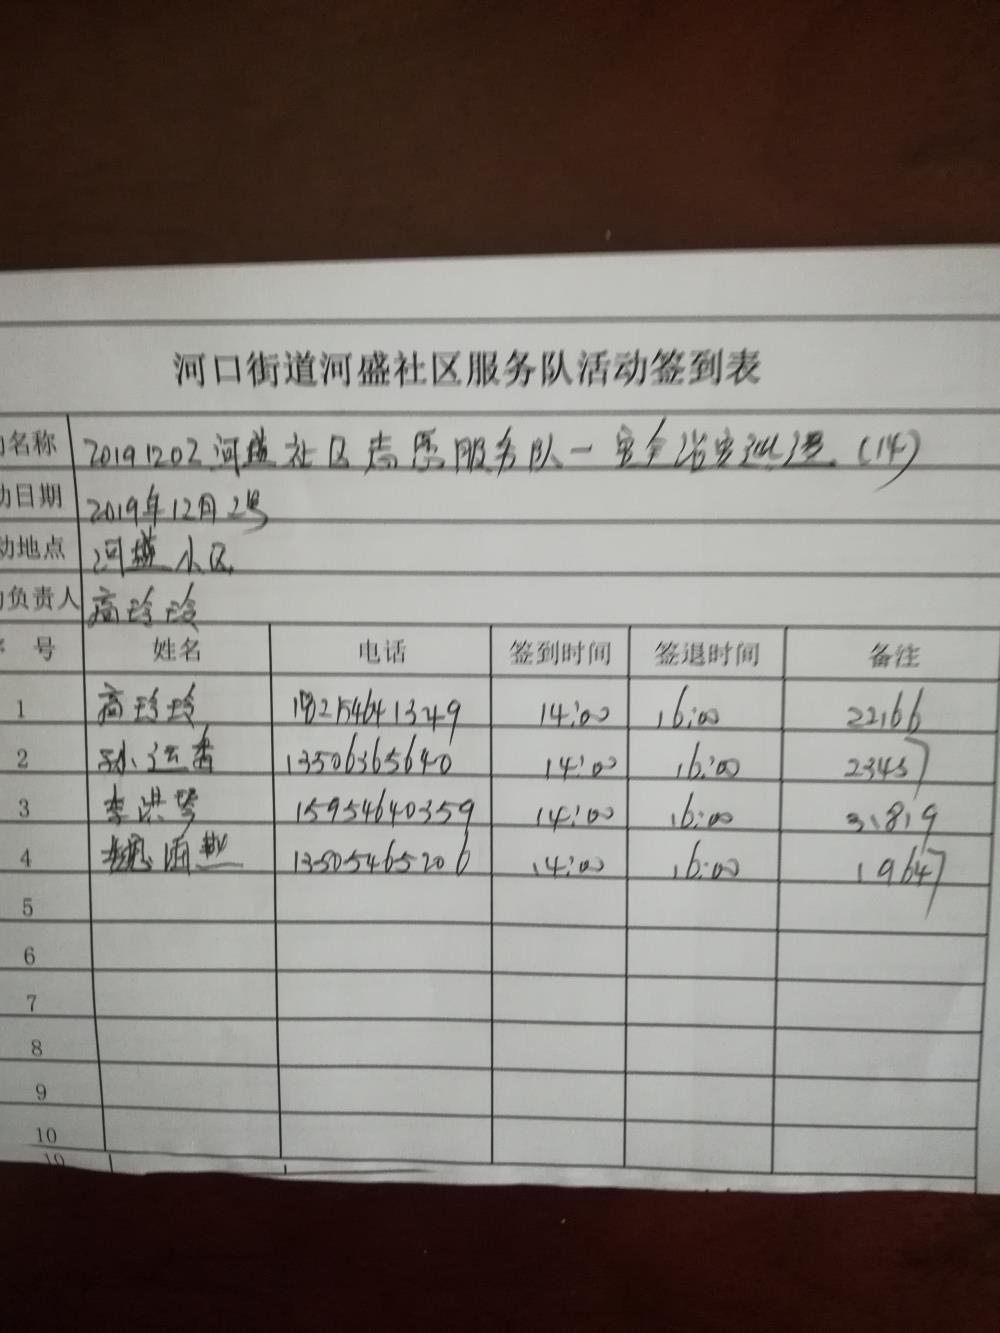 河口街道河盛社区服务队活动签到表
名称 20191202河盛社区志愿服务队一安全治安巡逻(14)
动日期 2019年12月2号
动地点 河盛小区
负责人 高玲玲
号 姓名 电话 签到时间 签退时间 备注
1 高玲玲 14:00 16:00 22166
2 孙运香 13506365640 14:00 16:00 23457
3 李洪琴 15954640359 14:00 16:00 31819
4 13505465206 14:00 16:00 19647
5
6
7
8
9
10
10